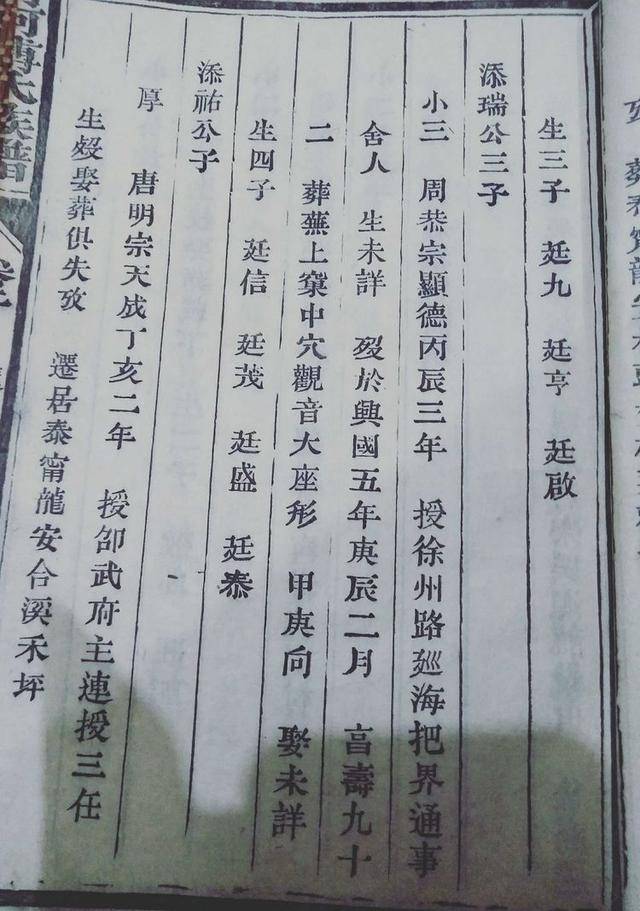 生三子 廷九 廷亨 廷啟
添瑞公三子
小三 周恭宗顯德丙辰三年 授徐州路廵海把界通事
舍人 生未詳 歿於興國五年庚辰二月 享壽九十
二 葬蕪上窠中穴觀音大座形 甲庚向 娶未詳
生四子 廷信 廷茂 廷盛 廷泰
添祐公子
厚 唐明宗天成丁亥二年 授邵武府主連授三任
生歿娶葬俱失攷 遷居泰甯龍安合溪禾坪
氏族譜